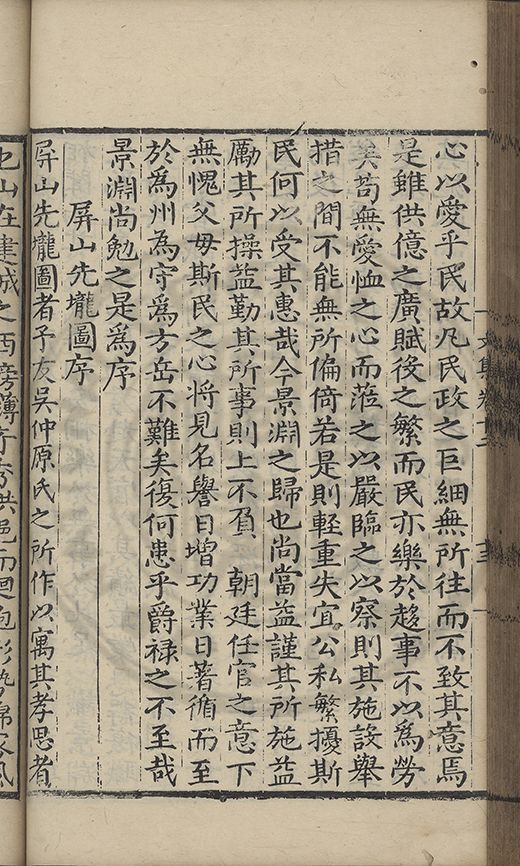 心以愛乎民故凡民政之巨細無所往而不致其意焉
是雖供億之廣賦役之繁而民亦樂於趍事不以為勞
矣苟無愛恤之心而蒞之以嚴臨之以察則其施設舉
措之間不能無所偏倚若是則輕重失宜公私繁擾斯
民何以受其惠哉今景淵之歸也尚當益謹其所施益
勵其所操益勤其所事則上不負　朝廷任官之意下
無愧父母斯民之心將見名譽日增功業日著循而至
於為州為守為方岳不難矣復何患乎爵祿之不至哉
景淵尚勉之是為序
屏山先壠圖序
屏山先壠圖者予友吳仲原氏之所作以寓其孝思者
也山在建城之西旁薄